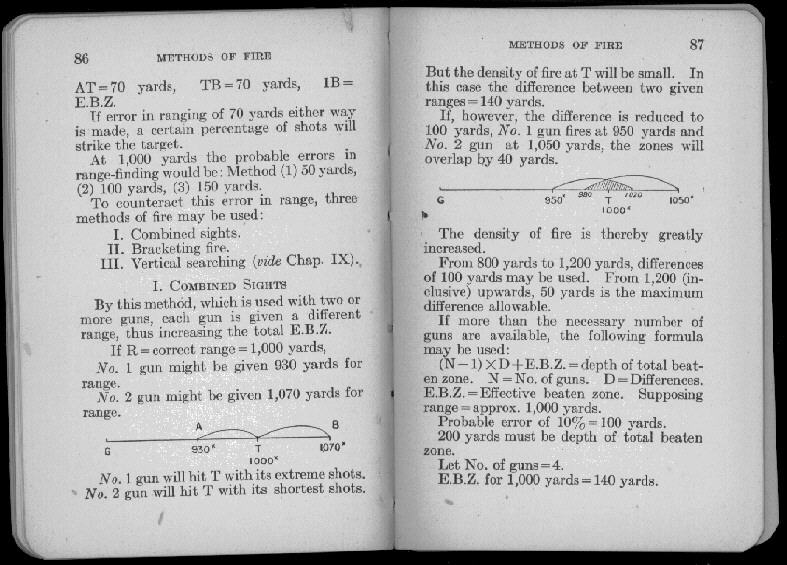 86 METHODS OF FIRE
AT=70 yards, TB=70 yards, 1B=
E.B.Z.
If error in ranging of 70 yards either way
is made, a certain percentage of shots will
strike the target.
At 1,000 yards the probable errors in
range-finding would be: Method (1) 50 yards,
(2) 100 yards, (3) 150 yards.
To counteract this error in range, three
methods of fire may be used:
I. Combined sights.
II. Bracketing fire.
III. Vertical searching (vide Chap. IX).
I. COMBINED SIGHTS
By this method, which is used with two or
more guns, each gun is given a different
range, thus increasing the total E.B.Z.
If R=correct range=1,000 yards,
No. 1 gun might be given 930 yards for
range.
No. 2 gun might be given 1,070 yards for
range.
A B
G 930ˣ T 1070ˣ
1000ˣ
No. 1 gun will hit T with its extreme shots.
No. 2 gun will hit T with its shortest shots.
METHODS OF FIRE 87
But the density of fire at T will be small. In
this case the difference between two given
ranges=140 yards.
If, however, the difference is reduced to
100 yards, No. 1 gun fires at 950 yards and
No. 2 gun at 1,050 yards, the zones will
overlap by 40 yards.
G 950ˣ 980 T 1020 1050ˣ
1000ˣ
The density of fire is thereby greatly
increased.
From 800 yards to 1,200 yards, differences
of 100 yards may be used. From 1,200 (in-
clusive) upwards, 50 yards is the maximum
difference allowable.
If more than the necessary number of
guns are available, the following formula
may be used:
(N−1)×D+E.B.Z.=depth of total beat-
en zone. N=No. of guns. D=Differences.
E.B.Z.=Effective beaten zone. Supposing
range=approx. 1,000 yards.
Probable error of 10%=100 yards.
200 yards must be depth of total beaten
zone.
Let No. of guns=4.
E.B.Z. for 1,000 yards=140 yards.